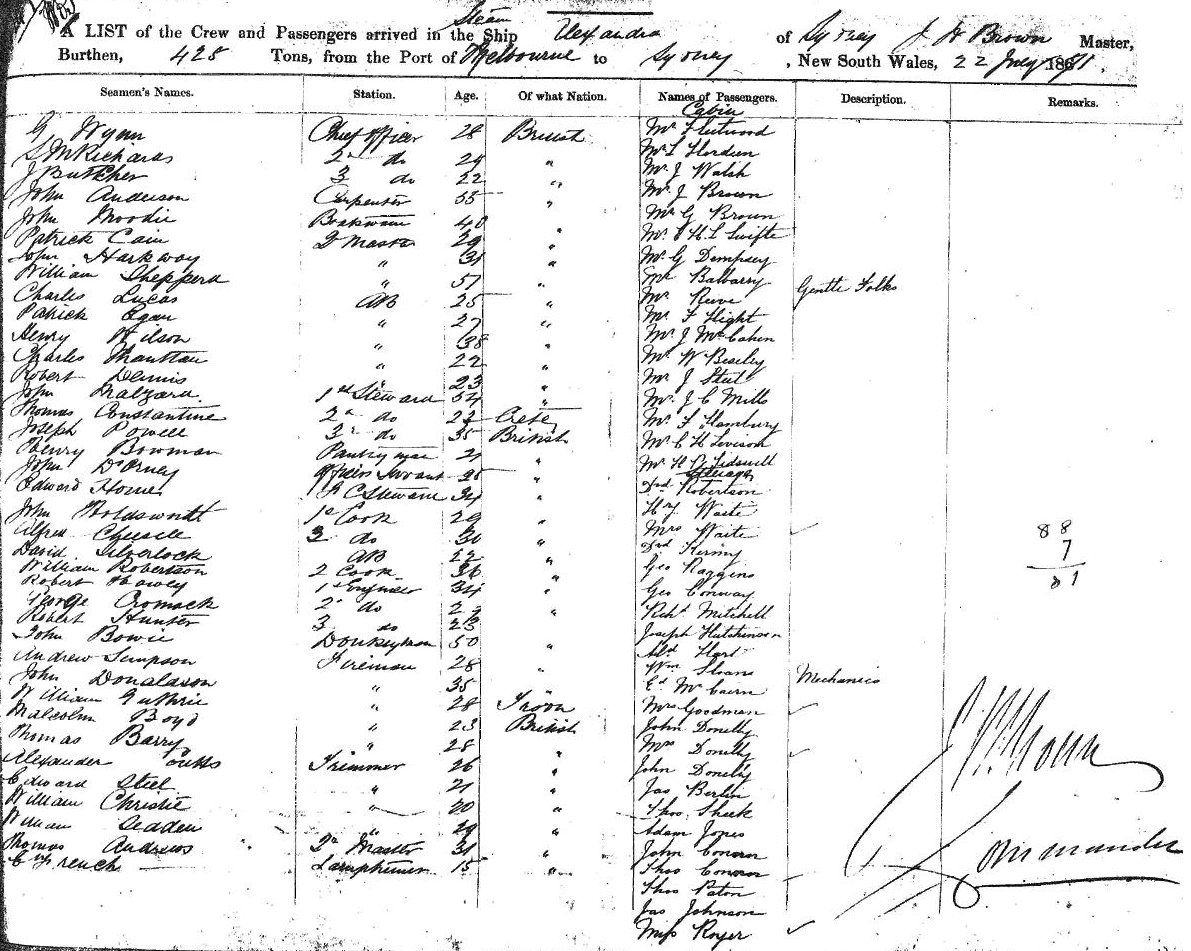 A LIST of the Crew and Passengers arrived in the Steam Ship Alexandra of Sydney J H Brown Master,
Burthen, 428 Tons, from the Port of Melbourne to Sydney, New South Wales, 22 July 1871.
Seamen's Names. Station. Age. Of what Nation. Names of Passengers. Description. Remarks.
Cabin
G Wynn Chief Officer 28 British Mr Fleetwood
S McRichards 2nd do 29 " Mr L Herdeen
J Butcher 3 do 22 " Mr J Walsh
John Anderson Carpenter 35 " Mr J Brown
John Moodie Boatswain 40 " Mr G Brown
Patrick Cain Q Master 29 " Mr H L Swifte
John Harkway " 31 " Mr G Dempsey
William Shepperd " 57 " Mr Balbarry Gentle Folks
Charles Lucas AB 25 " Mr Reeve
Patrick Egan " 27 " Mr F Hight
Henry Wilson " 38 " Mr J McCahen
Charles " 22 " Mr W Beseley
Robert Dennis " 23 " Mr J Steel
John Malzard. 1st Steward 34 " Mr J C Mills
Thomas Constantine 2nd do 22 Crete Mr F Hambury
Joseph Powell 3rd do 35 British Mr C H Levison
Henry Bowman Pantry man 21 " Mr H
Steerage
John D'Orney Officers Servant 25 "
Edward Horne F C Steward 34 " Robertson
John Holdsworth 1st Cook 29 " Hy Waite
Alfred 3 do 30 " Mrs Waite
David Silverlock AB 22 "
William Robertson 2 Cook 36 " Geo Raggins
Robert 1st Engineer 34 " Geo Conway
George Cromack 2nd do 27 " Richd Mitchell
Robert Hunter 3 do 23 " Joseph Hutchinson
John Bowie Donkeyman 50 " Hart
Andrew Simpson Fireman 28 " Wm Sloane
John Donaldson " 35 " Ed McCairn Mechanics
William Guthrie " 28 Mrs Goodman
Malcolm Boyd " 23 British John Donelly
Thomas Barry " 28 " Mrs Donelly
Alexander Coutts Trimmer 26 " John Donelly
Edward Steel " 21 " Jas Berlin
William Christie " 20 " Thos
William Seddon " 29 " Adam Jones
Thomas Andrews Qr Master 31 " John Conoron
C French Lamptrimmer 15 " Thos Conoron
Thos Paton
Jas Johnson
Miss Royer
88
7
81
J H Brown
Commander